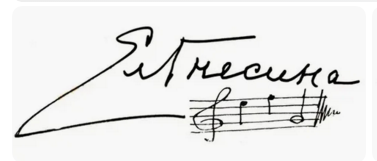 ЕлГнесина